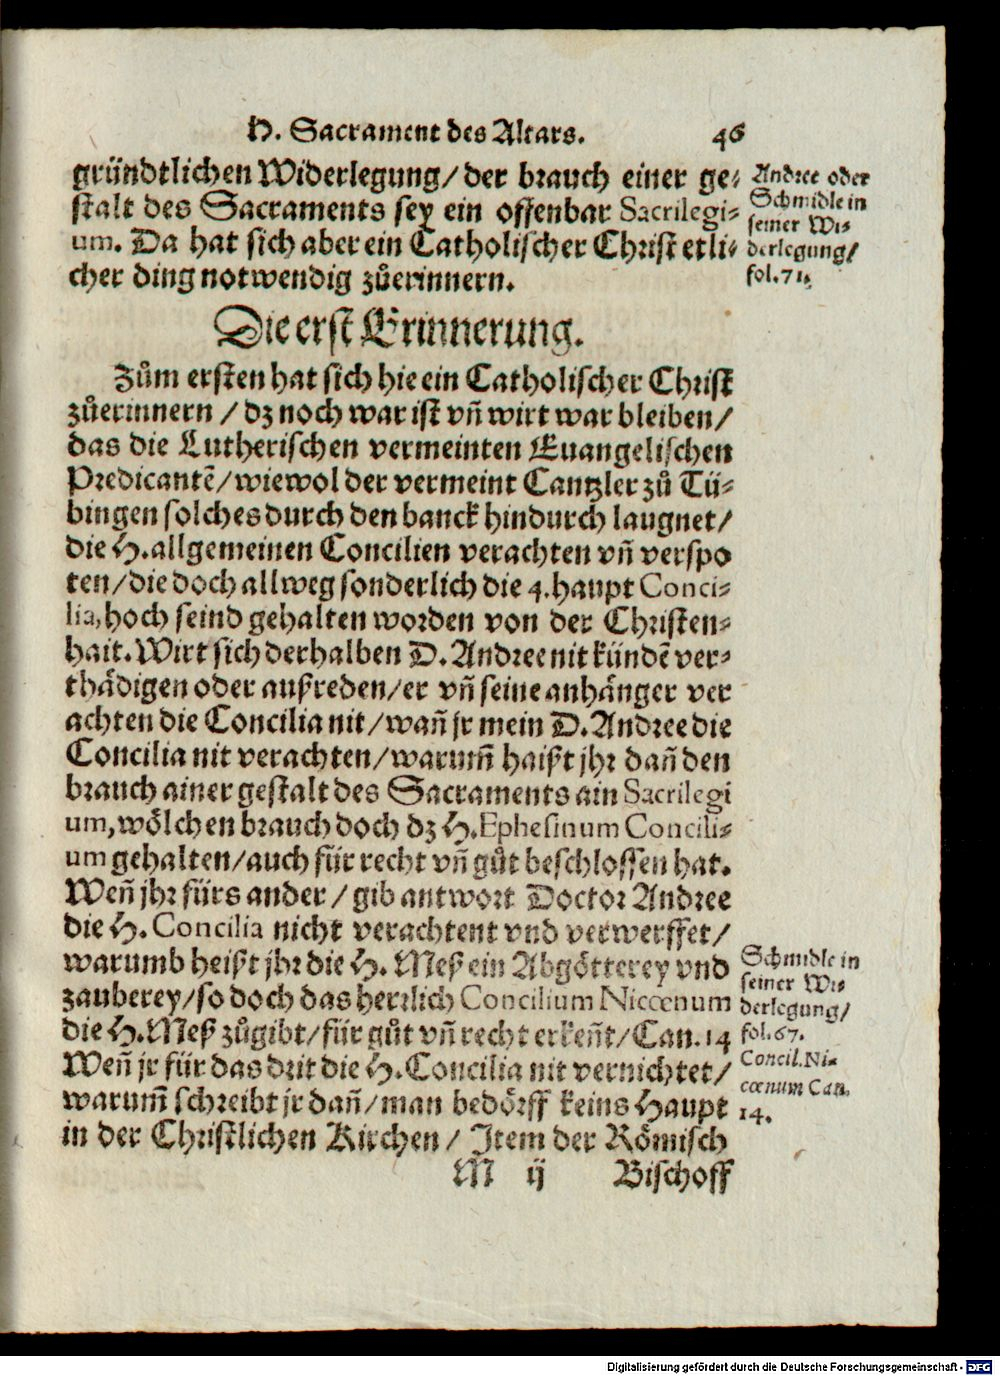 H. Sacrament des Altars. 46
gründtlichen Widerlegung/ der brauch einer ge⸗
stalt des Sacraments sey ein offenbar Sacrilegi⸗
um. Da hat sich aber ein Catholischer Christ etli⸗
cher ding notwendig zůerinnern.
Andree oder
Schmidle in
seiner Wi⸗
derlegung/
fol. 71.
Die erst Erinnerung.
Zům ersten hat sich hie ein Catholischer Christ
zůerinnern / dz noch war ist vñ wirt war bleiben/
das die Lutherischen vermeinten Euangelischen
Predicantẽ/ wiewol der vermeint Cantzler zů Tü⸗
bingen solches durch den banck hindurch laugnet/
die H. allgemeinen Concilien verachten vñ verspo
ten/ die doch allweg sonderlich die 4. haupt Conci⸗
lia, hoch seind gehalten worden von der Christen⸗
hait. Wirt sich derhalben D. Andree nit kündẽ ver⸗
thädigen oder außreden/ er vñ seine anhänger ver
achten die Concilia nit/ wañ jr mein D. Andree die
Concilia nit verachten/ warum̃ haißt jhr dañ den
brauch ainer gestalt des Sacraments ain Sacrilegi
um, wölchen brauch doch dz H. Ephesinum Concili⸗
um gehalten/ auch für recht vñ gůt beschlossen hat.
Weñ jhr fürs ander / gib antwort Doctor Andree
die H. Concilia nicht verachtent vnd verwerffet/
warumb heißt jhr die H. Meß ein Abgötterey vnd
zauberey/ so doch das herrlich Concilium Nicœnum
die H. Meß zůgibt/ für gůt vñ recht erkeñt/ Can. 14
Weñ jr für das drit die H. Concilia nit vernichtet/
warum̃ schreibt jr dañ/ man bedörff keins Haupt
in der Christlichen Kirchen / Item der Römisch
Schmidle in
seiner Wi⸗
derlegung/
fol. 67.
Concil. Ni⸗
cœnum Can.
14.
M ij Bischoff
Digitalisierung gefördert durch die Deutsche Forschungsgemeinschaft - DFG